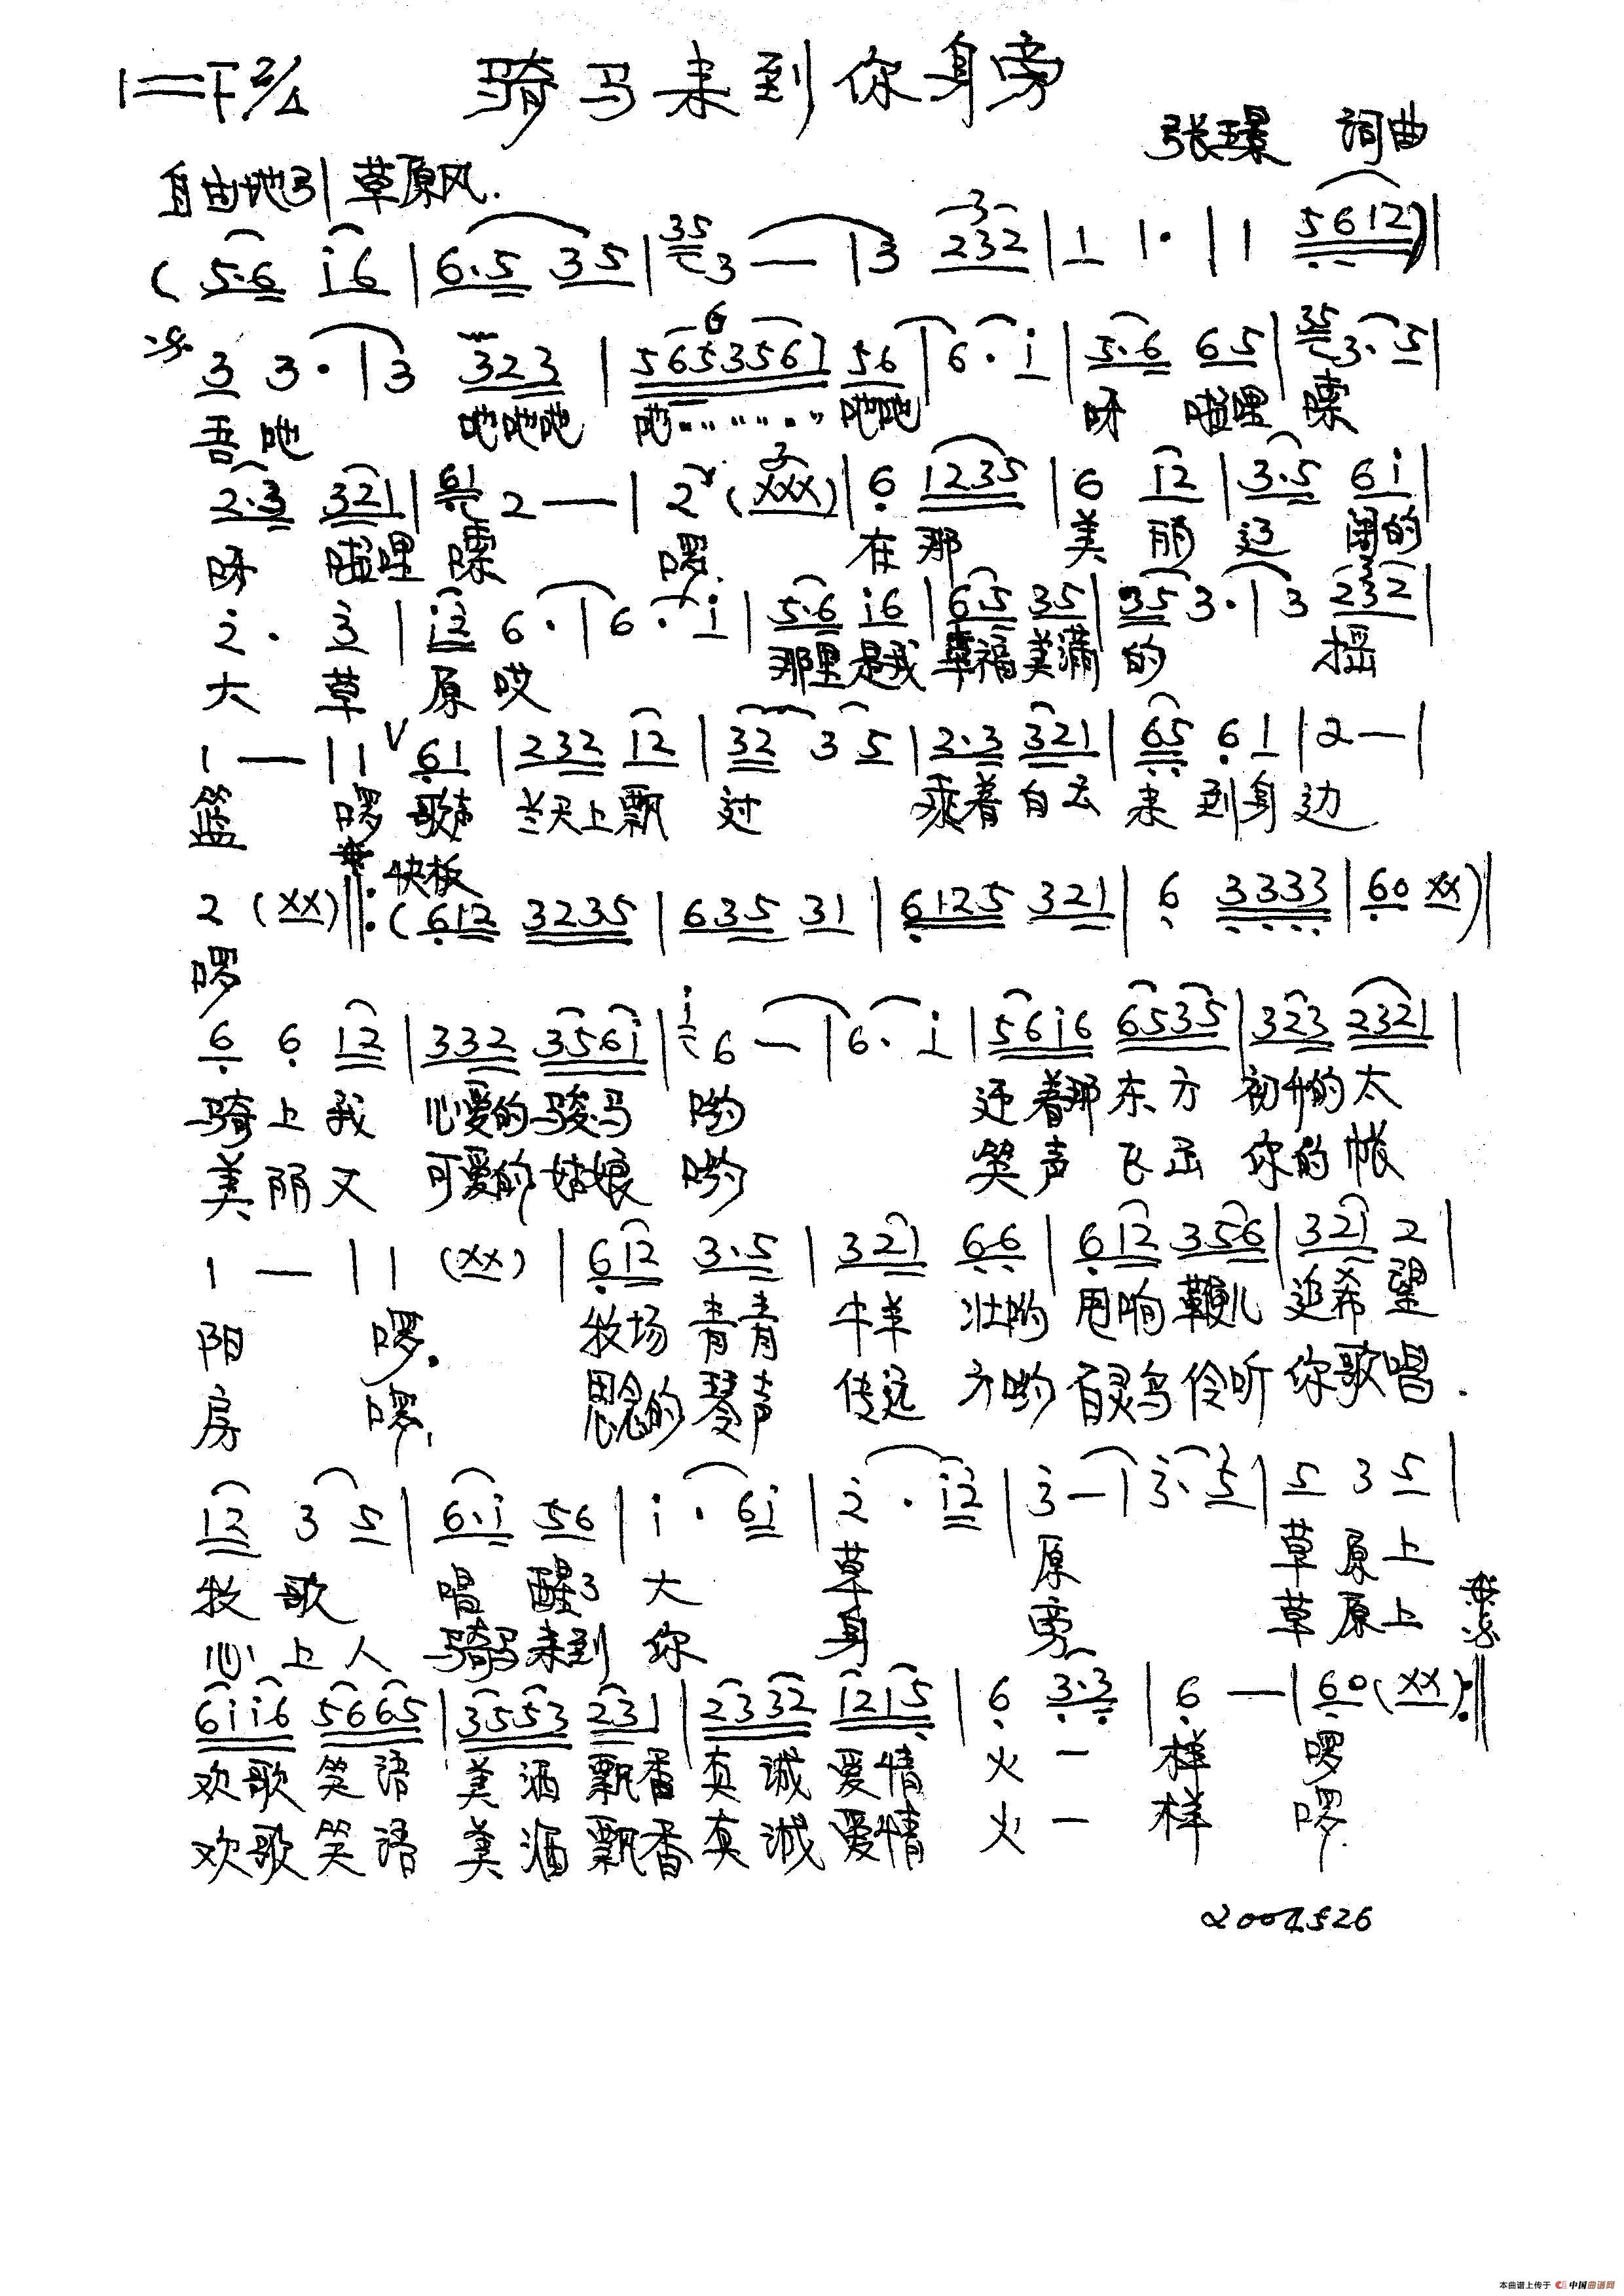 1=F 2/4 骑马来到你身旁
张璟 词曲
自由地 草原风.
( 5·6 i6 | 6·5 35 | 35 3 — | 3 232 | 1 1· | 1 5612 ) |
3 3· | 3 323 | 5653561 56 | 6· i | 5·6 65 | 35 3· 5 |
2·3 321 | 61 2 — | 2 (XXX) | 6 1235 | 6 12 | 3·5 6i |
在那 美丽 的
2· 3 | i2 6· | 6· i | 5·6 i6 | 65 35 | 35 3· | 3 232 |
大草原哎 那里是我幸福美满的 摇
1 — | 1 61 | 232 12 | 32 3 5 | 2·3 321 | 65 61 | 2 — |
篮 啰 歌声 天上飘过 乘着白云来到身边
快板
2 (XX) ‖: ( 612 3235 | 635 31 | 6125 321 | 6 3333 | 60 XX ) |
啰
6 6 12 | 332 356i | i 6 — | 6· i | 56i6 6535 | 323 2321 |
骑上我 心爱的骏马 哟 迎着那东方 初升的太
美丽又 可爱的姑娘 哟 笑声飞出 你的帐
1 — | 1 (XX) | 612 3·5 | 321 66 | 612 356 | 321 2 |
阳 啰. 牧场青青 牛羊壮哟 甩响鞭儿 追希望
房 啰, 思念的琴声 传远方哟 百灵鸟伶听 你歌唱.
12 3 5 | 6·i 56 | i· 6i | 2· i2 | 3 — | 3· 5 | 5 3 5 |
牧歌 唱醒了 大 草 原 草原上
心上人 骑马来到 你 身 旁 草原上
6ii6 5665 | 3553 231 | 2332 1215 | 6 3·3 | 6 — | 60 (XX) :‖
欢歌笑语 美酒飘香 真诚爱情 火一样 啰
欢歌笑语 美酒飘香 真诚爱情 火一样 啰.
本曲谱上传于 中国曲谱网